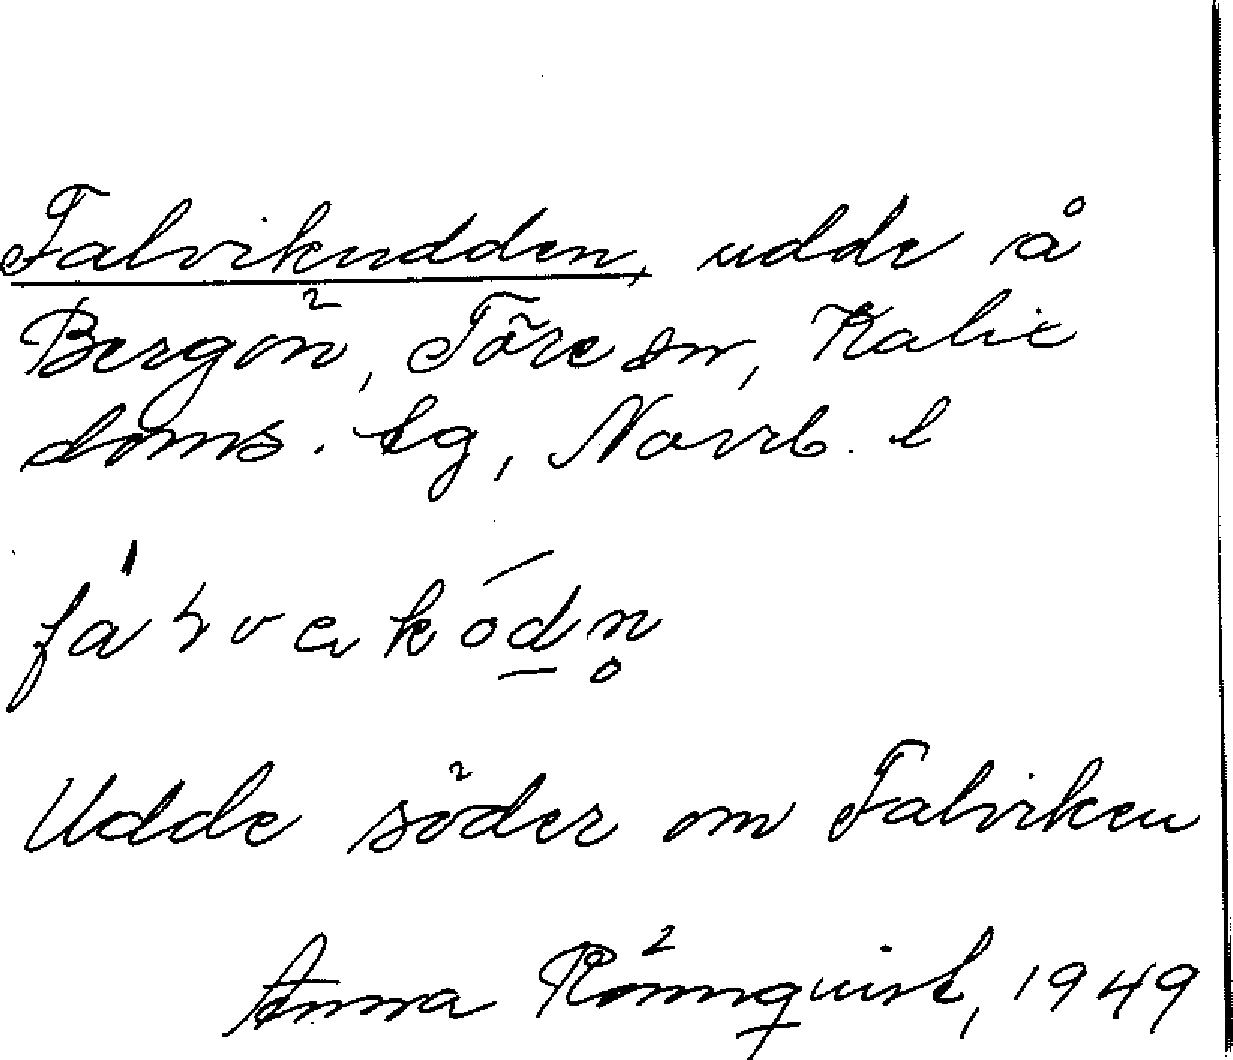 Falvikudden, udde å
Bergön, Töre sn, Kalix
doms. lg, Norrb. l
Udde söder om Falviken
Anna Rönnquist, 1949